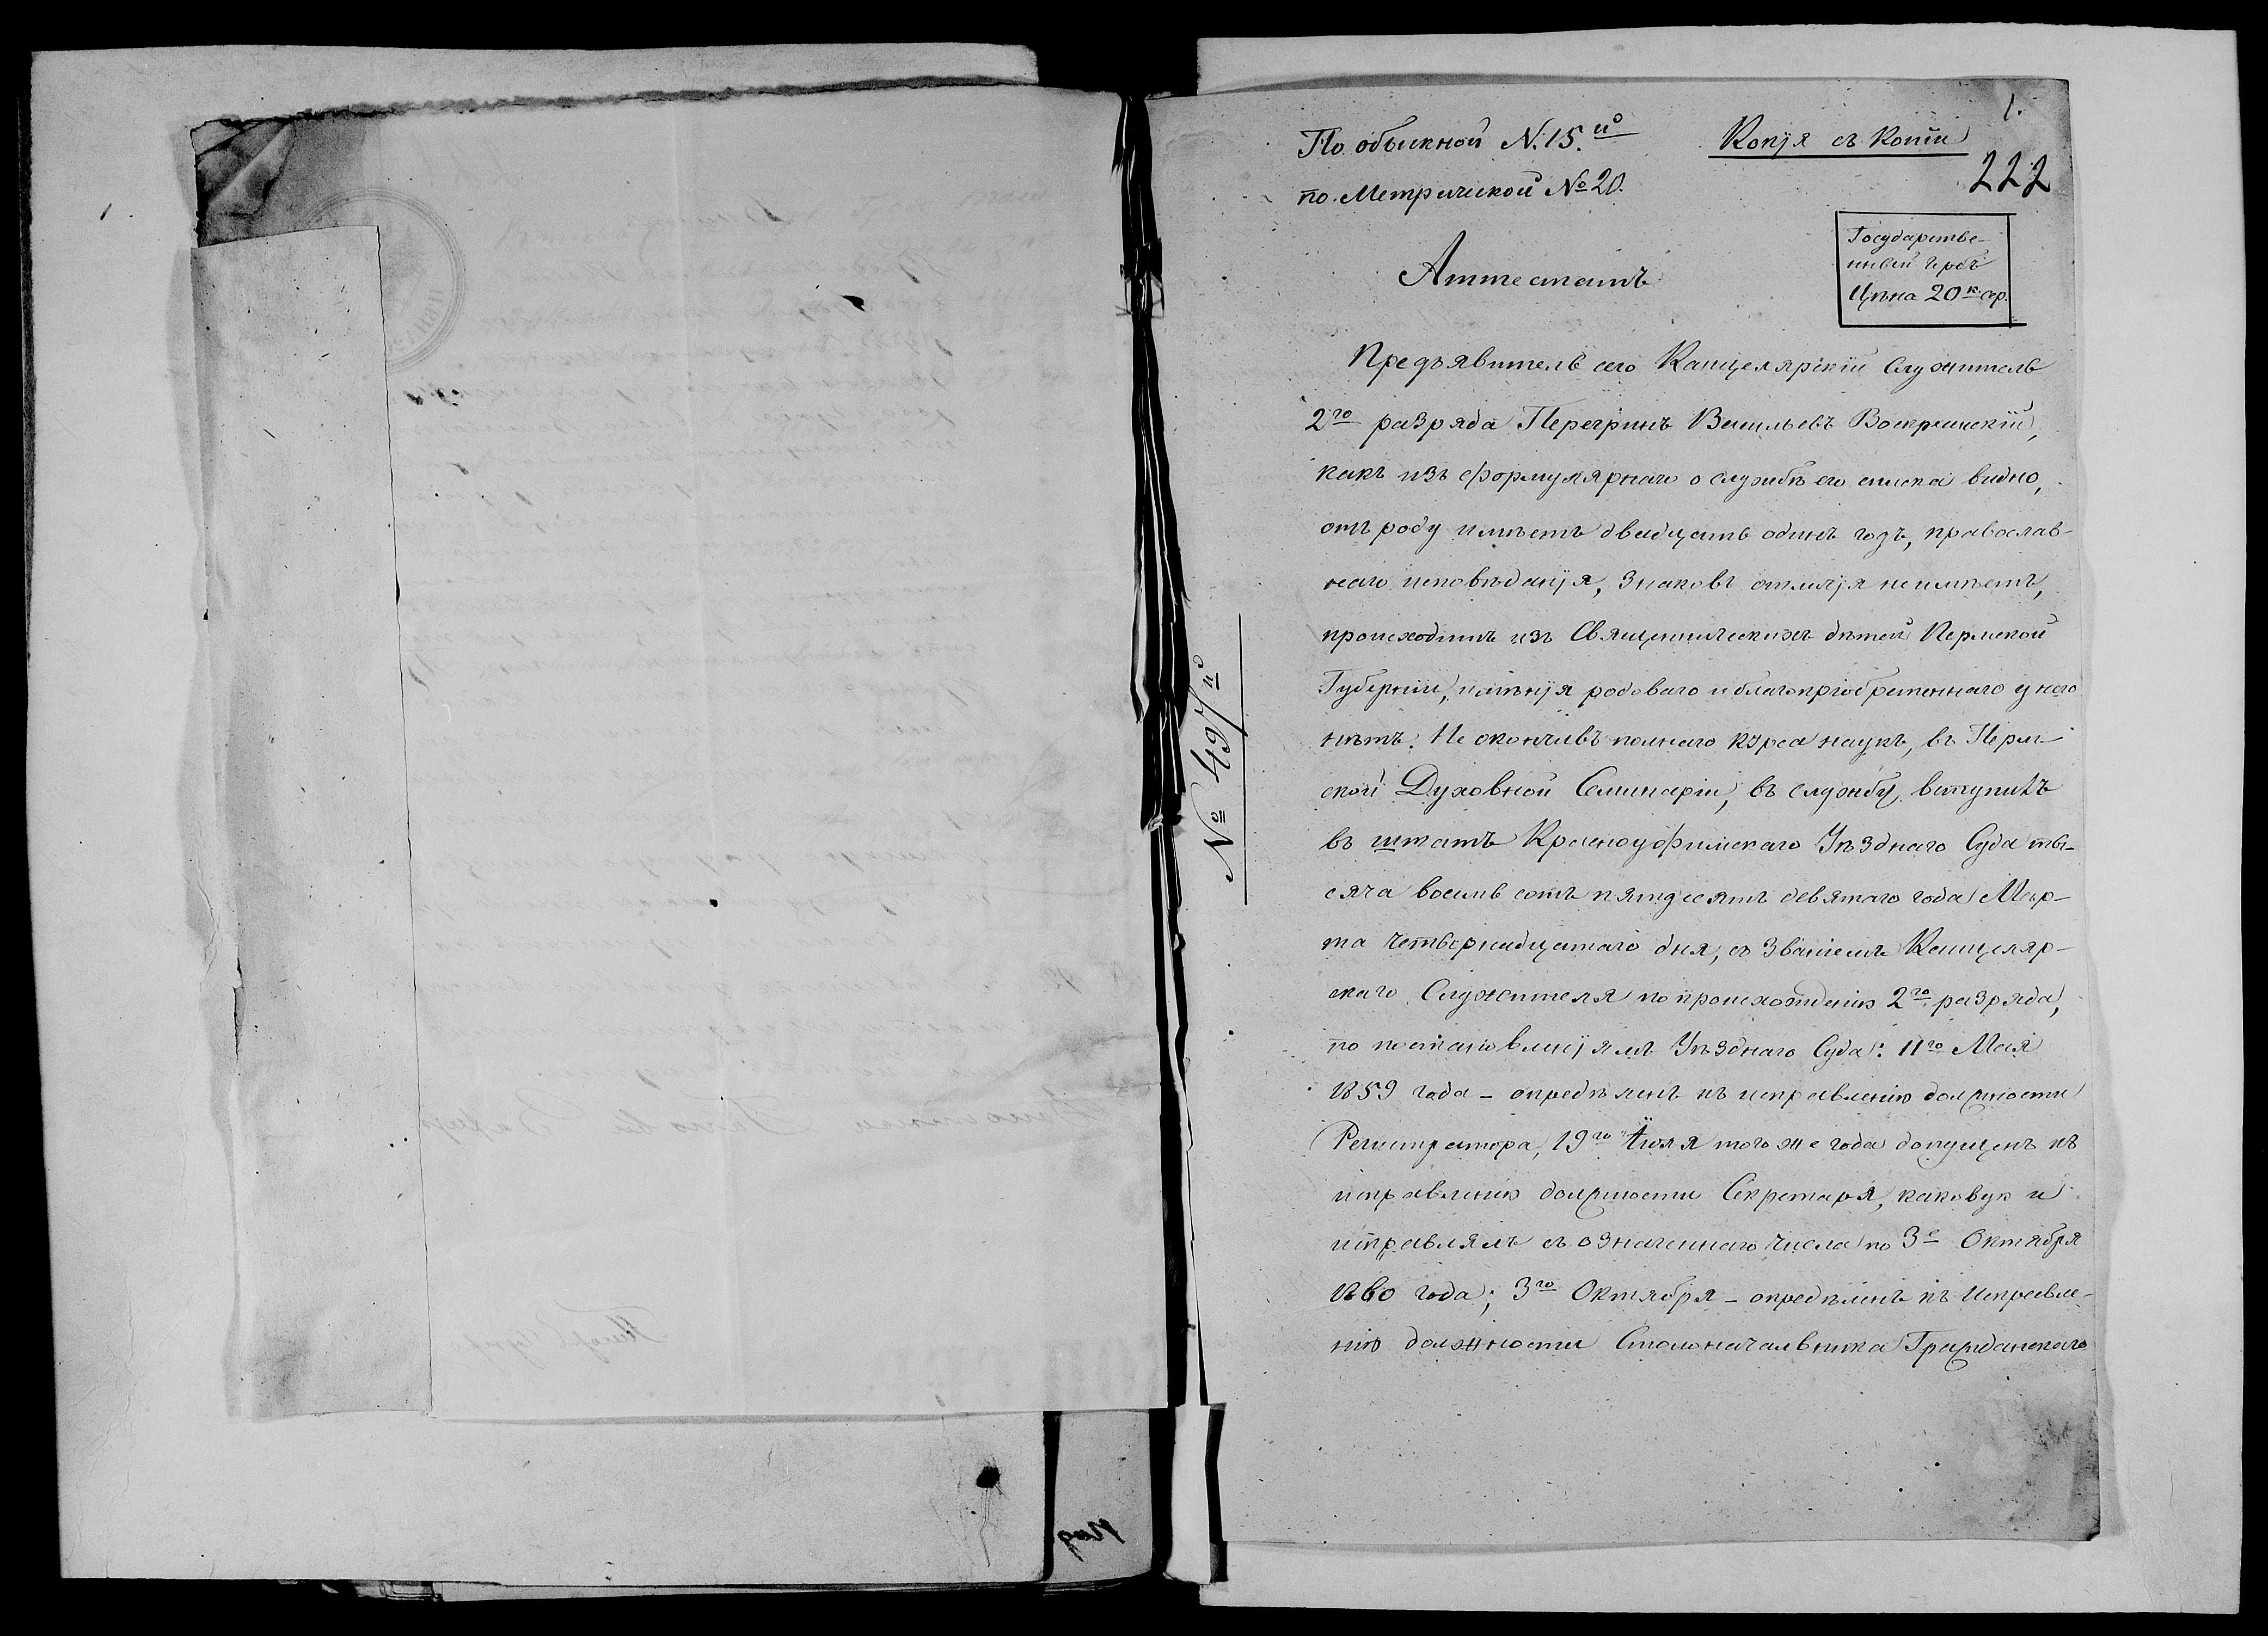 1.
По обыкной N. 15.й
Копія съ Копіи
222
по Метрической № 20.
Государстве-
нный гербъ
Цѣна 20 к. сер.
Аттестатъ
Предъявитель сего Канцелярскій Служитель
2го разряда Перегринъ Васильевъ Воскресенскій,
какъ изъ формулярнаго о службѣ его списка видно,
отъ роду имѣетъ двадцать одинъ годъ, православ-
наго исповѣданія, знаковъ отличія не имѣетъ,
происходитъ изъ Священническихъ дѣтей Пермской
Губерніи, имѣнія родоваго и благопріобретеннаго у него
нѣтъ. Не окончивъ полнаго курса наукъ, въ Перм-
ской Духовной Семинаріи, въ службу вступилъ
въ штатъ Красноуфимскаго Уѣзднаго Суда ты-
сяча восемь сотъ пятдесятъ девятаго года Мар-
та четвернадцатаго дня, съ званіемъ Канцеляр-
скаго Служителя по происхожденію 2го разряда,
по постановленіямъ Уѣзднаго Суда: 11го Мая
1859 года – опредѣленъ къ исправленію должности
Регистратора, 19го Іюля того же года допущенъ къ
исправленію должности Секретаря, каковую и
исправлялъ съ означеннаго числа по 3е Октября
1860 года; 3го Октября – опредѣленъ къ исправле-
нію должности Столоначальника Гражданскаго
№ 497й